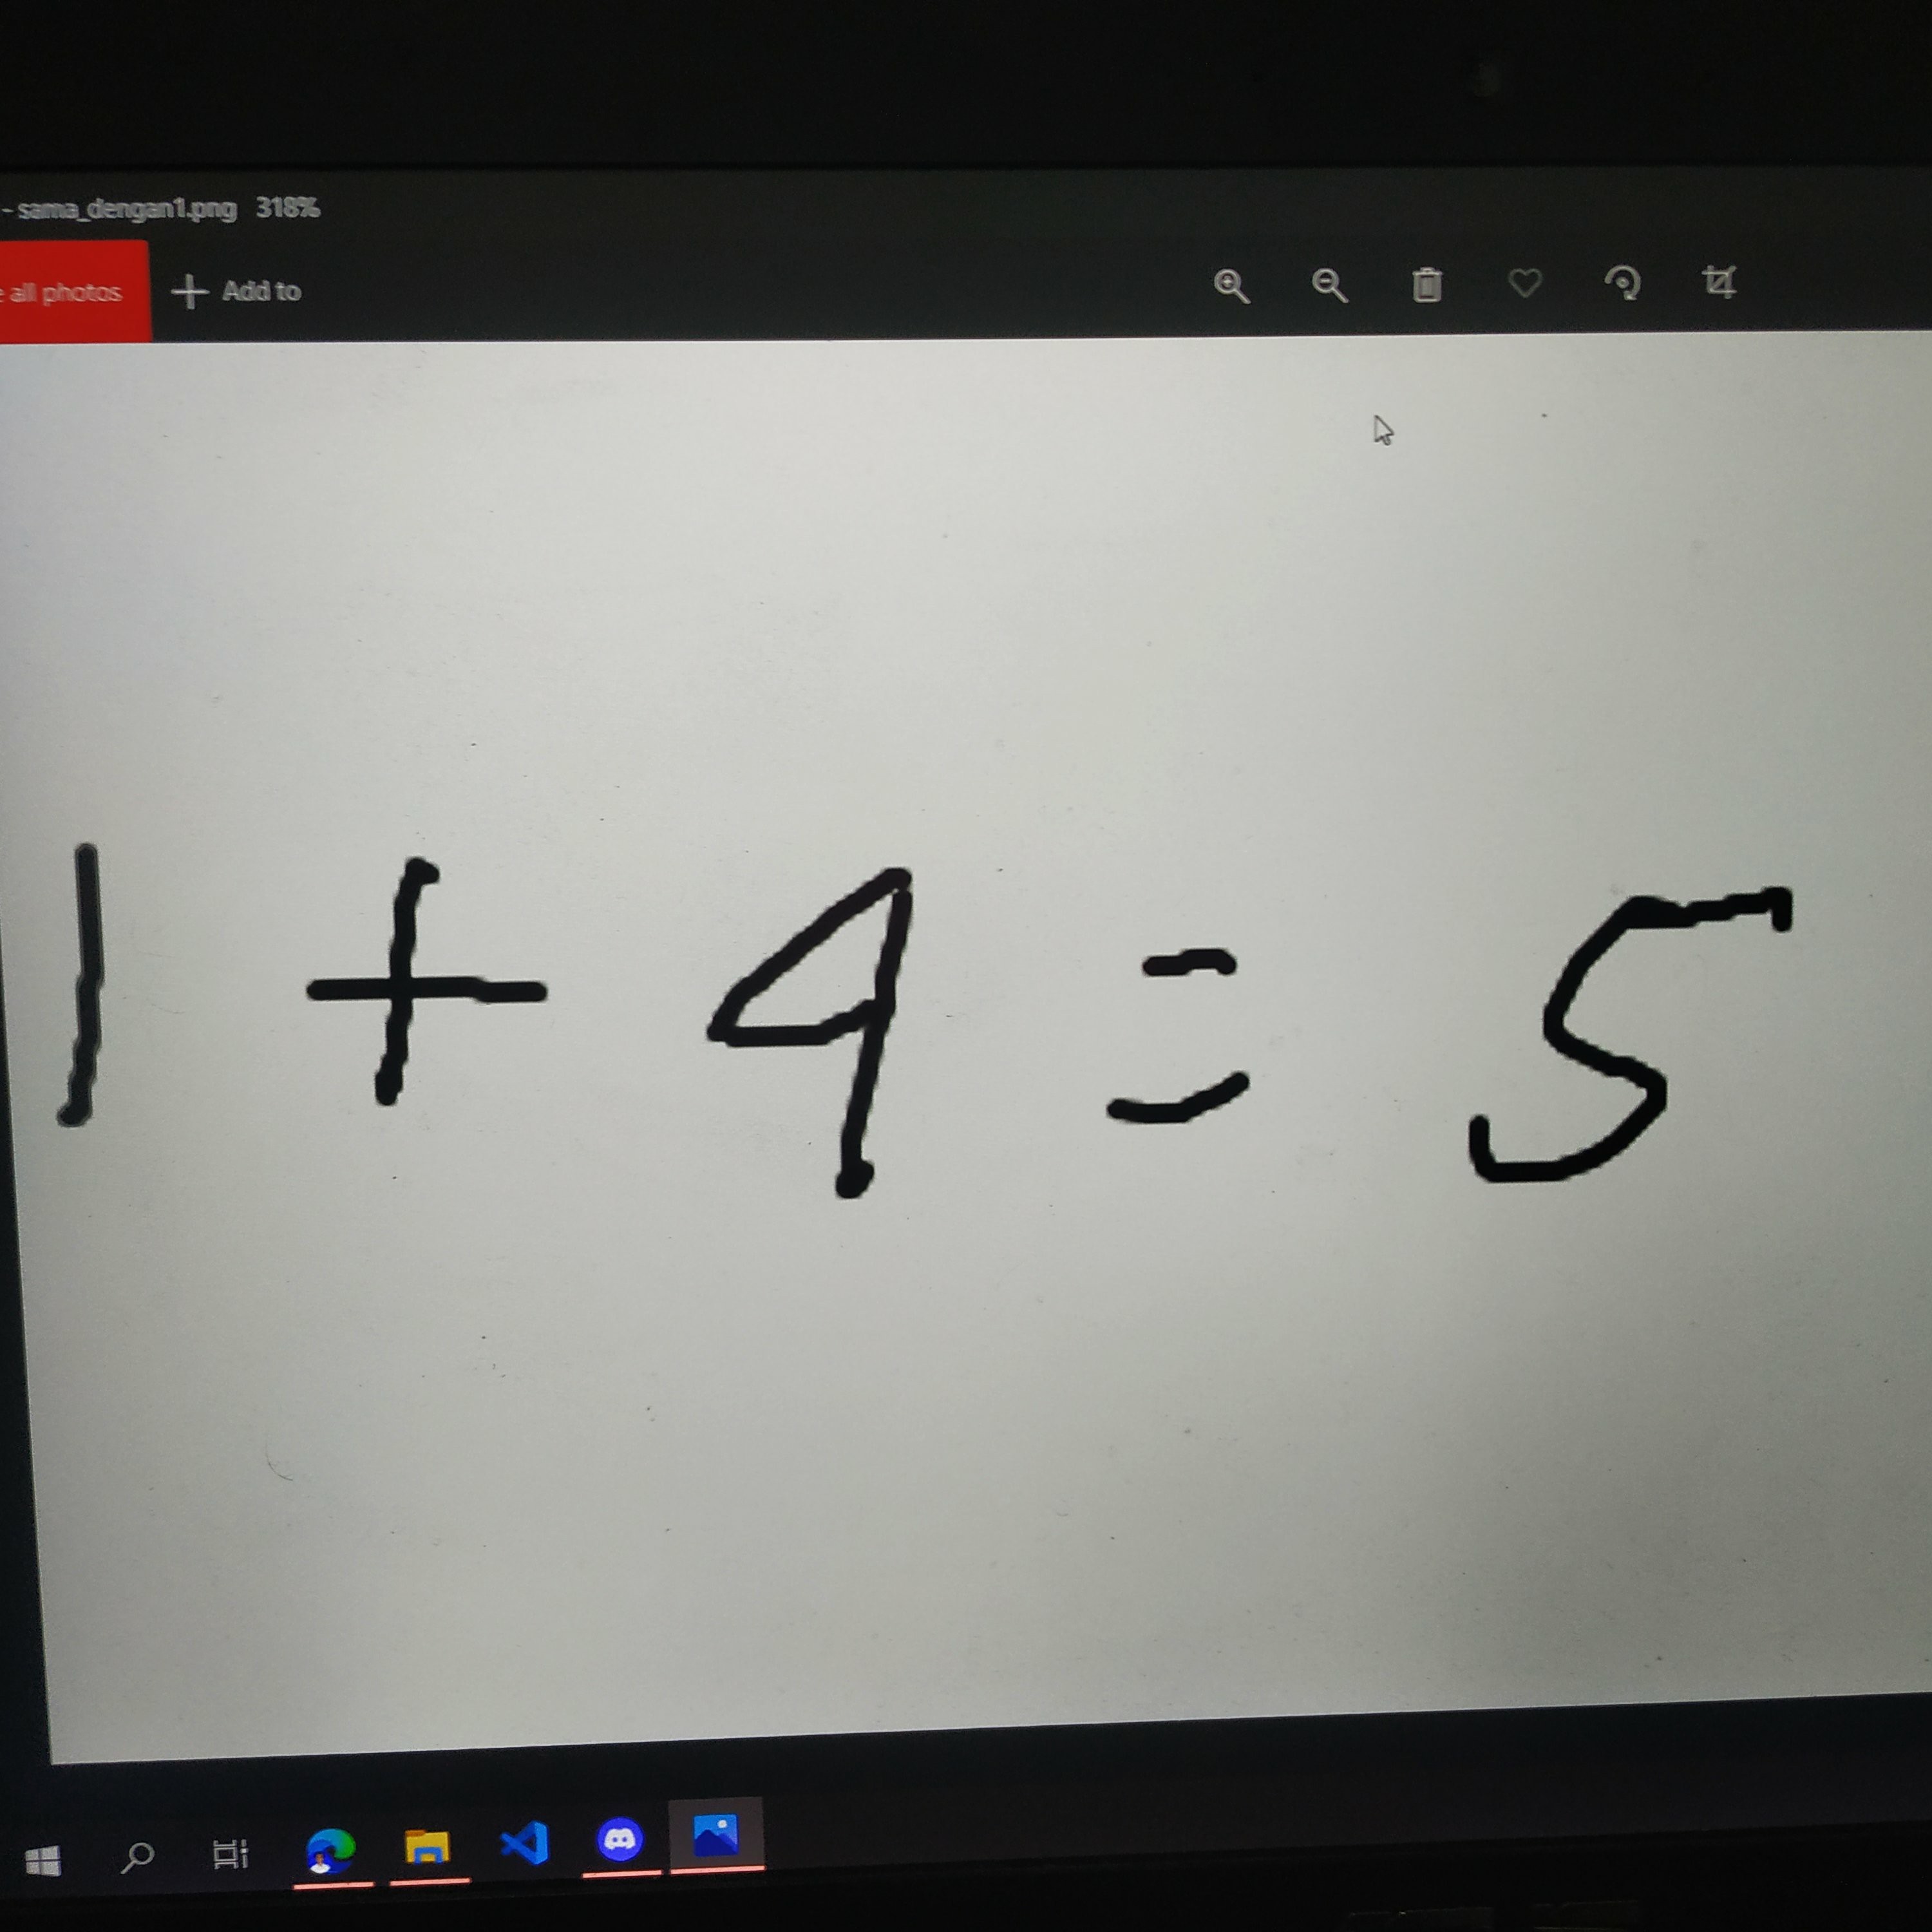 - sama_dengan1.png 318%
all photos + Add to
1 + 4 = 5